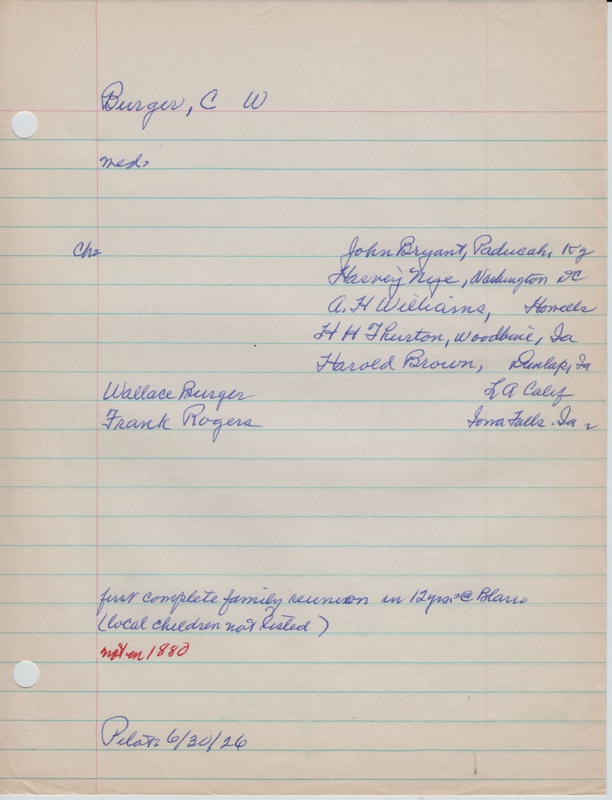 Burger, C W
med.
Ch: John Bryant, Paducah, Ky
Harvey Nye, Washington DC
A. H Williams, Howells
H H Thurston, Woodbine, Ia
Harold Brown, Dunlap, Ia
Wallace Burger L A Calif
Frank Rogers Iowa Falls. Ia.
first complete family reunion in 12 yrs. @ Blair.
(local children not listed)
not in 1880
Pilot: 6/30/26